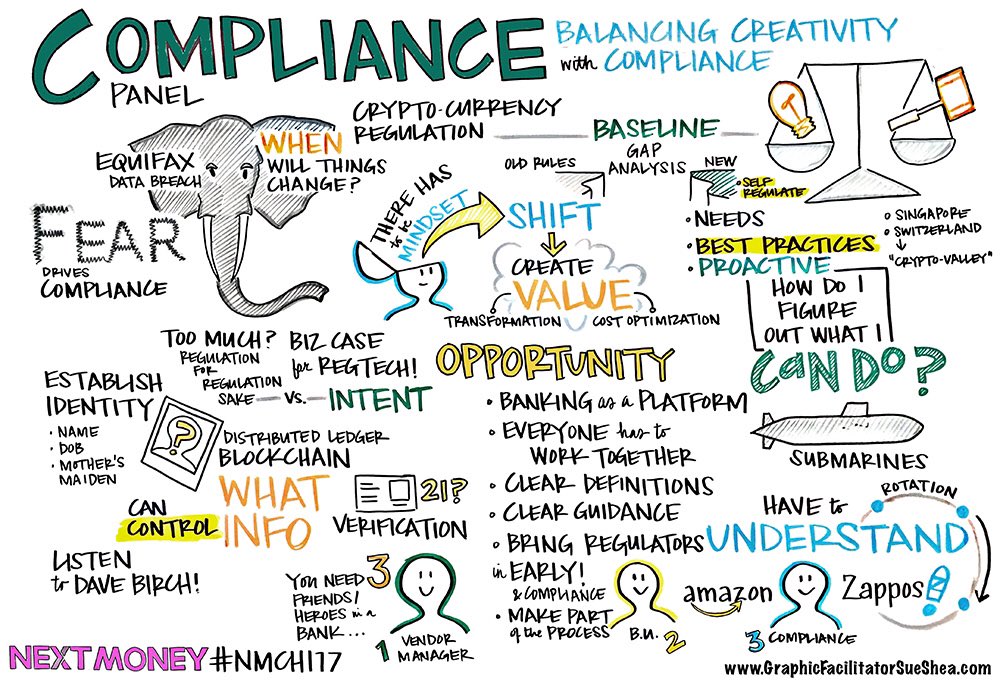 COMPLIANCE
PANEL
BALANCING CREATIVITY
with COMPLIANCE
CRYPTO-CURRENCY
REGULATION
BASELINE
GAP
ANALYSIS
OLD RULES
NEW
• SELF
REGULATE
EQUIFAX
DATA BREACH
WHEN
WILL THINGS
CHANGE?
FEAR
DRIVES
COMPLIANCE
THERE HAS
to be
MINDSET
SHIFT
CREATE
VALUE
TRANSFORMATION
COST OPTIMIZATION
• NEEDS
• BEST PRACTICES
• PROACTIVE
• SINGAPORE
• SWITZERLAND
"CRYPTO-VALLEY"
HOW DO I
FIGURE
OUT WHAT I
CAN DO?
SUBMARINES
TOO MUCH?
REGULATION
FOR
REGULATION
SAKE
VS.
INTENT
BIZ CASE
for REGTECH!
ESTABLISH
IDENTITY
• NAME
• DOB
• MOTHER'S
MAIDEN
?
DISTRIBUTED LEDGER
BLOCKCHAIN
CAN
CONTROL
WHAT
INFO
21?
VERIFICATION
LISTEN
to DAVE BIRCH!
OPPORTUNITY
• BANKING as a PLATFORM
• EVERYONE has to
WORK TOGETHER
• CLEAR DEFINITIONS
• CLEAR GUIDANCE
• BRING REGULATORS
in EARLY!
& COMPLIANCE
• MAKE PART
of the PROCESS
YOU NEED 3
FRIENDS/
HEROES in a
BANK...
1 VENDOR
MANAGER
B.U. 2
3 COMPLIANCE
HAVE to
UNDERSTAND
ROTATION
amazon
Zappos
NEXTMONEY #NMCHI17
www.GraphicFacilitatorSueShea.com